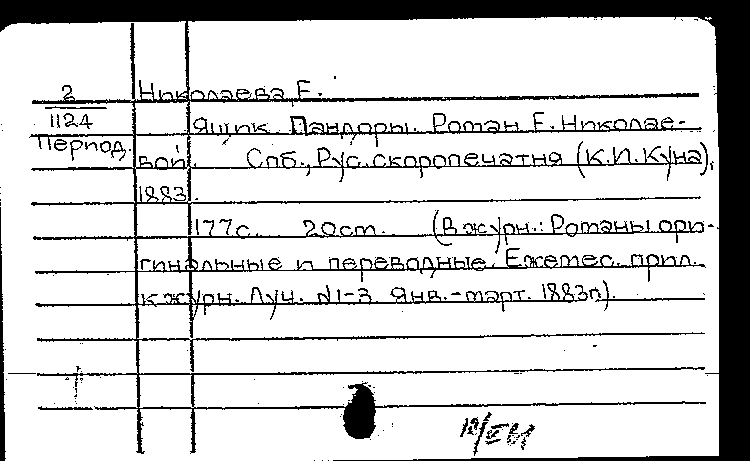 2
1124
Период.
Николаева, Е.
Ящик Пандоры. Роман Е. Николае-
вой. Спб., Рус. скоропечатня (К.И. Куна),
1883.
177с. 20ст. (В журн.: Романы ори-
гинальные и переводные. Ежемес. прил.
к журн. Луч. N1-3 Янв.-март. 1883г).